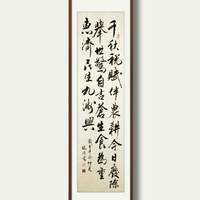 千秋税賦伴農耕今日廢除
舉世驚自古蒼生食為重
惠濟民生九洲興